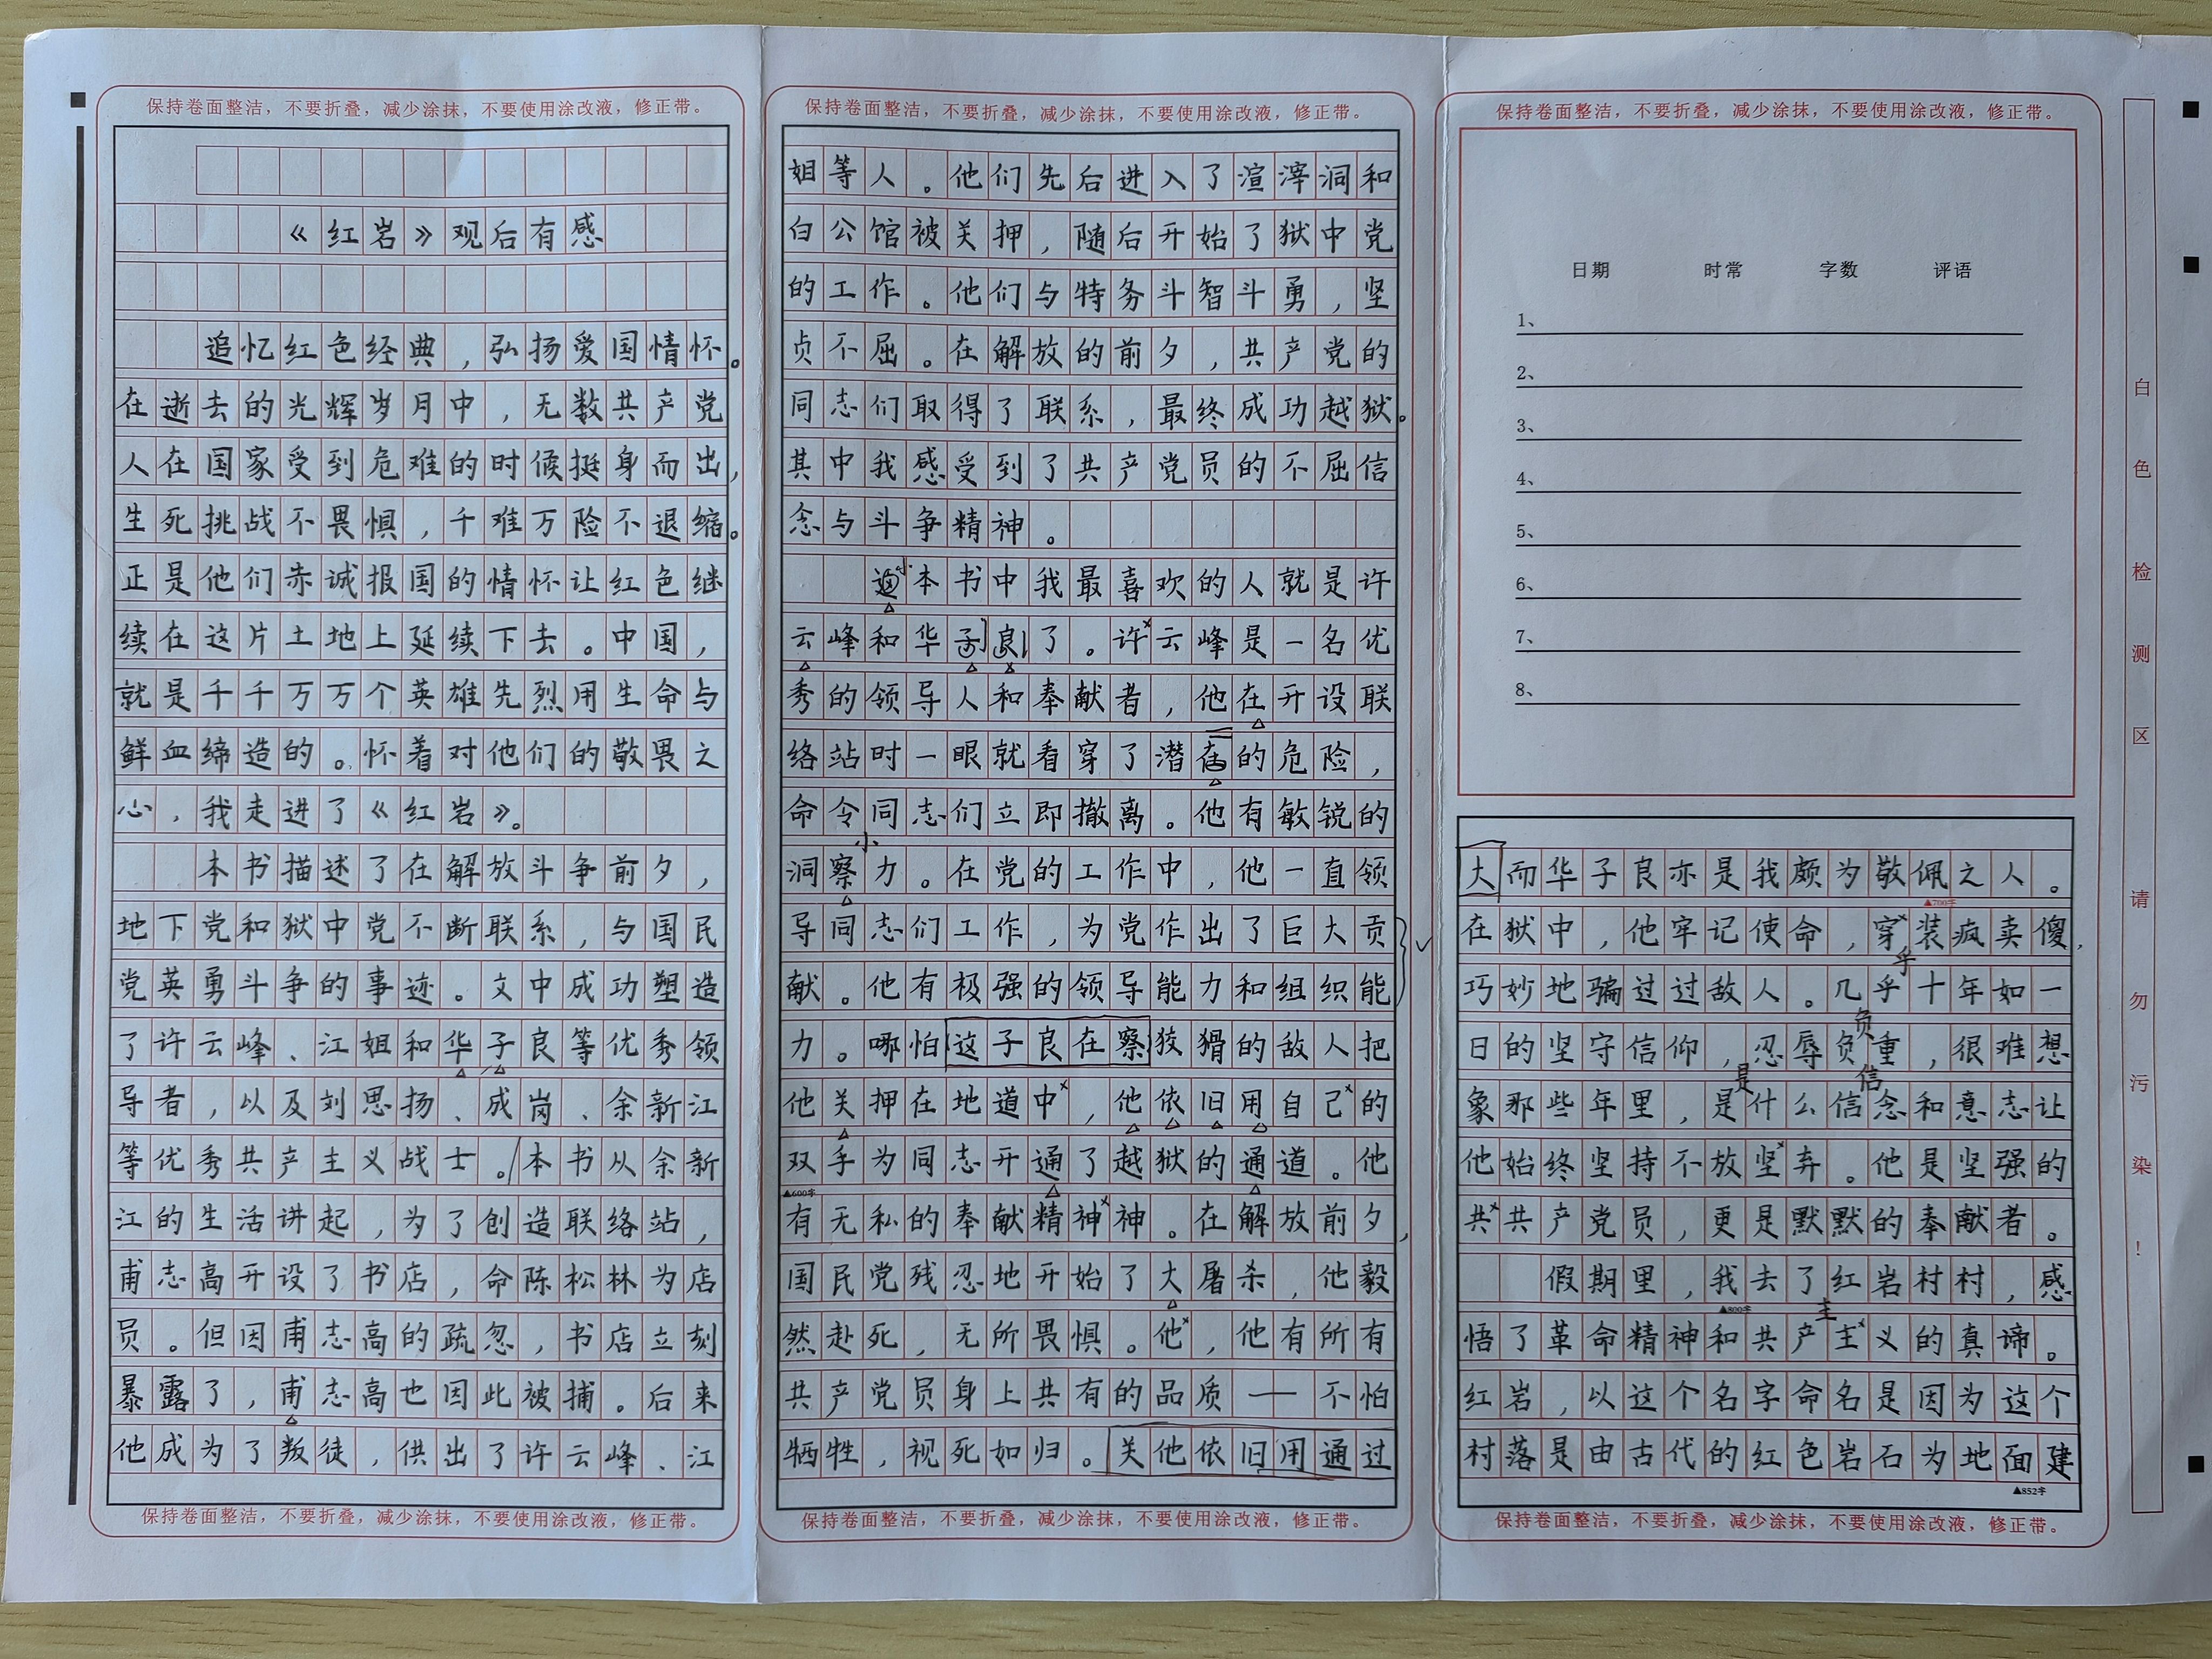 保持卷面整洁，不要折叠，减少涂抹，不要使用涂改液，修正带。
《红岩》观后有感
追忆红色经典，弘扬爱国情怀。
在逝去的光辉岁月中，无数共产党
人在国家受到危难的时候挺身而出，
生死挑战不畏惧，千难万险不退缩。
正是他们赤诚报国的情怀让红色继
续在这片土地上延续下去。中国，
就是千千万万个英雄先烈用生命与
鲜血缔造的。怀着对他们的敬畏之
心，我走进了《红岩》。
本书描述了在解放斗争前夕，
地下党和狱中党不断联系，与国民
党英勇斗争的事迹。文中成功塑造
了许云峰、江姐和华子良等优秀领
导者，以及刘思扬、成岗、余新江
等优秀共产主义战士。/本书从余新
江的生活讲起，为了创造联络站，
甫志高开设了书店，命陈松林为店
员。但因甫志高的疏忽，书店立刻
暴露了，甫志高也因此被捕。后来
他成为了叛徒，供出了许云峰、江
保持卷面整洁，不要折叠，减少涂抹，不要使用涂改液，修正带。
保持卷面整洁，不要折叠，减少涂抹，不要使用涂改液，修正带。
姐等人。他们先后进入了渣滓洞和
白公馆被关押，随后开始了狱中党
的工作。他们与特务斗智斗勇，坚
贞不屈。在解放的前夕，共产党的
同志们取得了联系，最终成功越狱。
其中我感受到了共产党员的不屈信
念与斗争精神。
本书中我最喜欢的人就是许
云峰和华子良了。许云峰是一名优
秀的领导人和奉献者，他在开设联
络站时一眼就看穿了潜在的危险，
命令同志们立即撤离。他有敏锐的
小
洞察力。在党的工作中，他一直领
导同志们工作，为党作出了巨大贡
献。他有极强的领导能力和组织能
力。哪怕这子良在察狡猾的敌人把
他关押在地道中，他依旧用自己的
双手为同志开通了越狱的通道。他
▲600字
有无私的奉献精神神。在解放前夕，
国民党残忍地开始了大屠杀，他毅
然赴死，无所畏惧。他，他有所有
共产党员身上共有的品质——不怕
牺牲，视死如归。关他依旧用通过
保持卷面整洁，不要折叠，减少涂抹，不要使用涂改液，修正带。
保持卷面整洁，不要折叠，减少涂抹，不要使用涂改液，修正带。
日期 时常 字数 评语
1、
2、
3、
4、
5、
6、
7、
8、
大而华子良亦是我颇为敬佩之人。
▲700字
在狱中，他牢记使命，穿装疯卖傻，
乎
巧妙地骗过过敌人。几乎十年如一
负
日的坚守信仰，忍辱负重，很难想
是 信
象那些年里，是什么信念和意志让
他始终坚持不放坚弃。他是坚强的
共共产党员，更是默默的奉献者。
假期里，我去了红岩村村，感
▲800字
主
悟了革命精神和共产主义的真谛。
红岩，以这个名字命名是因为这个
村落是由古代的红色岩石为地面建
▲852字
保持卷面整洁，不要折叠，减少涂抹，不要使用涂改液，修正带。
白色检测区 请勿污染！